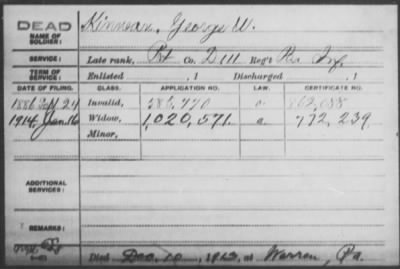 DEAD
NAME OF SOLDIER: Kinnear, George W.
SERVICE: Late rank, Pvt Co. D 111 Reg't Pa Inf
TERM OF SERVICE: Enlisted , 1 Discharged , 1
DATE OF FILING. CLASS. APPLICATION NO. LAW. CERTIFICATE NO.
1886 24 Invalid, 586,770
1914, Jan. 16 Widow, 1,020,571. a. 772,239
Minor,
ADDITIONAL SERVICES:
REMARKS:
Died Dec. 10, 1913, at Warren, Pa.